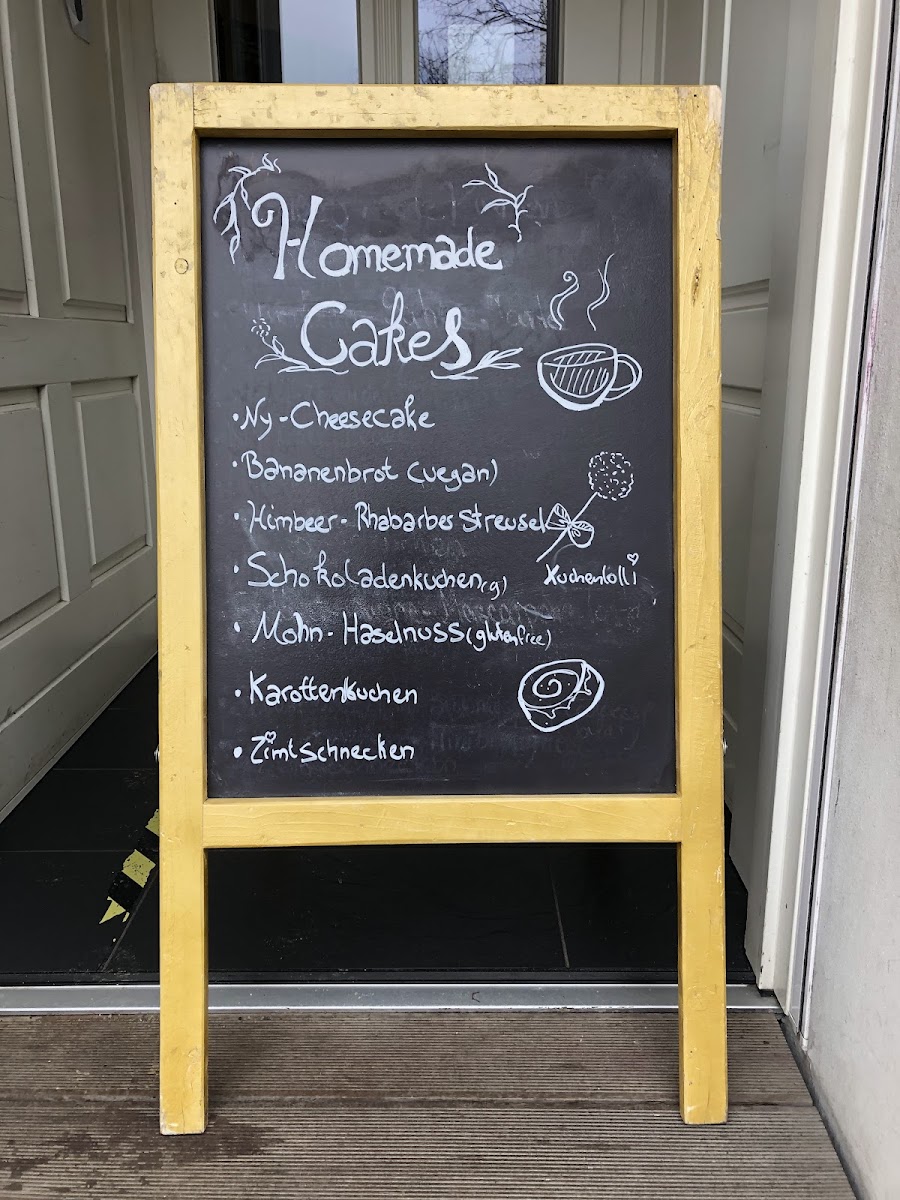 Homemade
Cakes
• Ny-Cheesecake
• Bananenbrot (vegan)
• Himbeer-Rhabarber Streusel
• Schokoladenkuchen (g)
Kuchenlolli
• Mohn-Haselnuss (glutenfree)
• Karottenkuchen
• Zimtschnecken